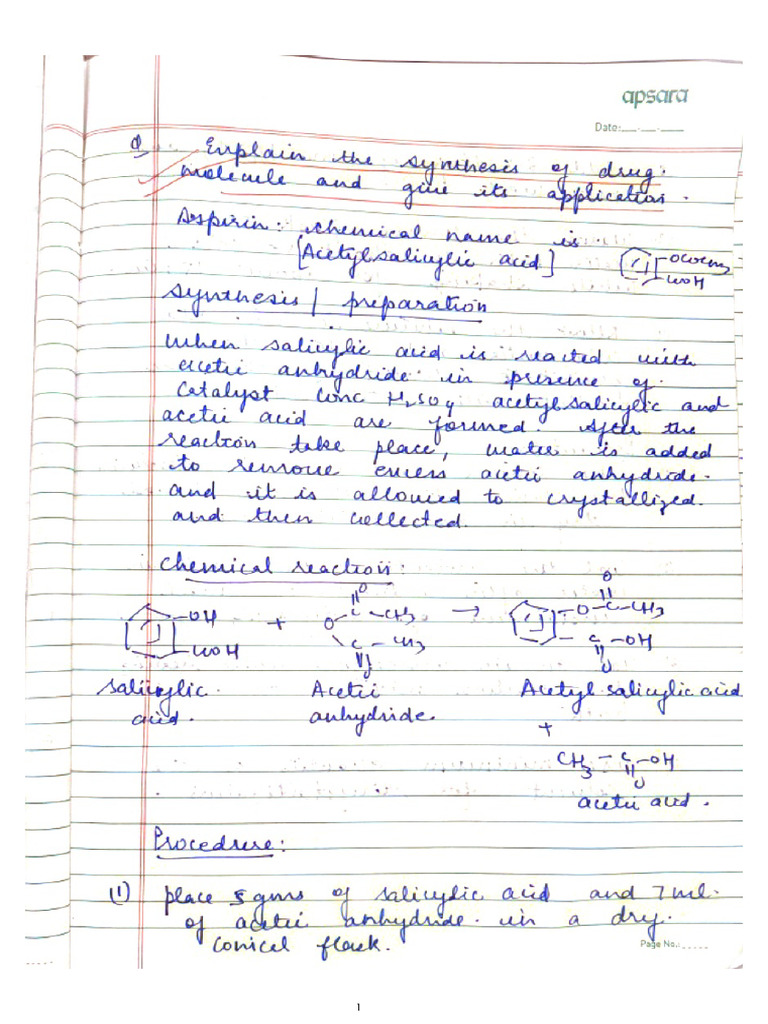 apsara
Date:
Q Explain the synthesis of drug.
molecule and give its application.
Aspirin: chemical name is.
[Acetylsalicylic acid]
OCOCH3
COOH
synthesis / preparation
When salicylic acid is reacted with
acetic anhydride in presence of.
catalyst conc H2SO4 acetylsalicylic and
acetic acid are formed. After the
reaction take place, water is added
to remove excess acetic anhydride.
and it is allowed to crystallized.
and then collected.
chemical reaction:
OH
COOH
+
O
C - CH3
O
C - CH3
O
→
O
O - C - CH3
C - OH
O
salicylic acid.
Acetic anhydride.
Acetyl salicylic acid
+
CH3 - C - OH
O
acetic acid.
Procedure:
(1) place 5 gms of salicylic acid and 7 ml.
of acetic anhydride. in a dry.
conical flask.
Page No.:
1